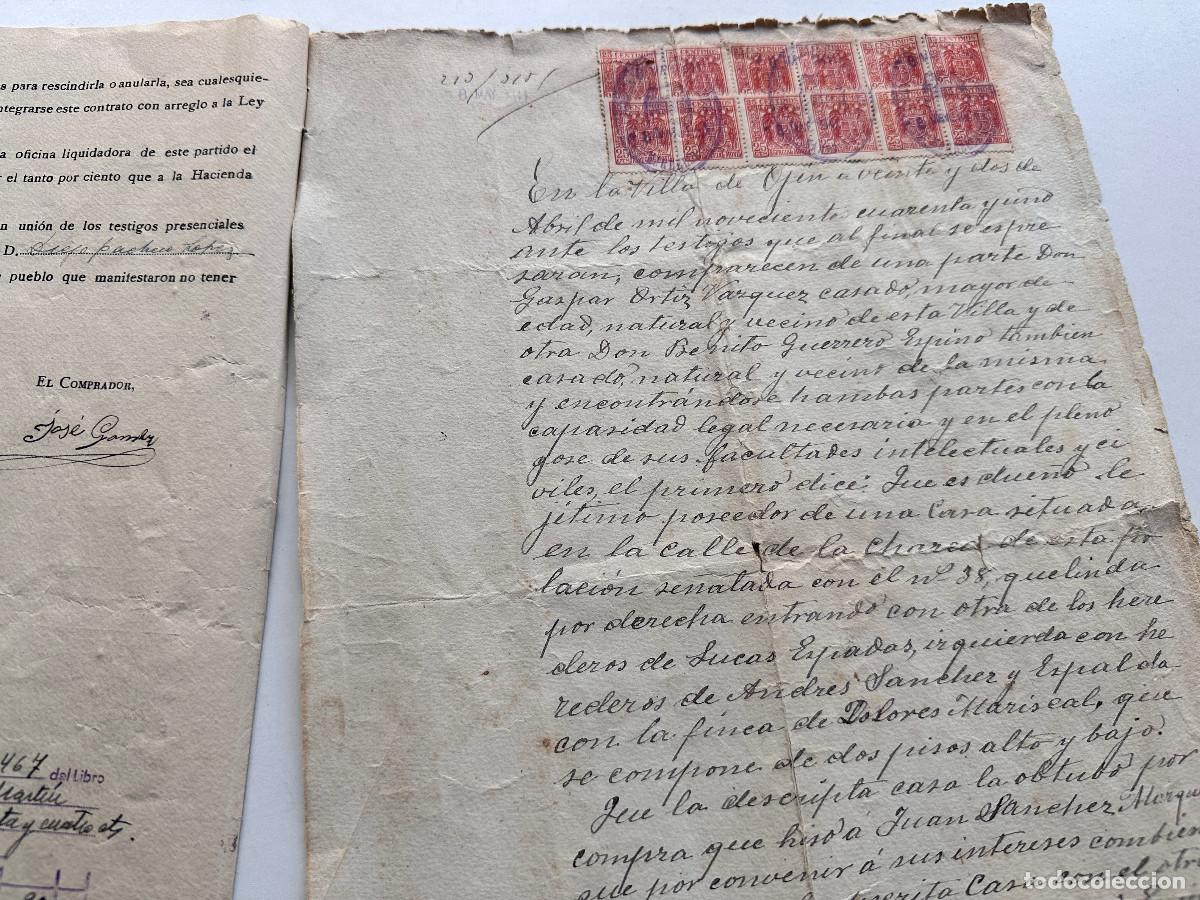 s para rescindirla o anularla, sea cualesquie-
ntegrarse este contrato con arreglo a la Ley
a oficina liquidadora de este partido el
r el tanto por ciento que a la Hacienda
n unión de los testigos presenciales
D. Diego pacheco
pueblo que manifestaron no tener
EL COMPRADOR,
José Gomez
467 del Libro
Martín
ta y cuatro cts.
En la Villa de Ojen a veinta y dos de
Abril de mil noveciento cuarenta y uno
ante los testogos que al final se espre
sarán, comparecen de una parte Don
Gaspar Ortiz Vazquez casado, mayor de
edad, natural y vecino de esta Villa y de
otra Don Benito Guerrero Espino tambien
casado, natural y vecino de la misma
y encontrándose hambas partes con la
capasidad legal necesaria y en el pleno
gose de sus facultades intelectuales y ci
viles, el primero dice: Que es dueño le
jitimo poseedor de una Casa setuada
en la calle de la Charca de esta po
lación señalada con el nº 38, que linda
por derecha entrando con otra de los here
deros de Lucas Espadas, izquierda con he
rederos de Andres Sanchez y Espalda
con la finca de Dolores Mariscal, que
se compone de dos pisos alto y bajo.
Que la descripta casa la obtubo por
compra que hiso á Juan Sanchez Marque
que por convenir á sus intereses combien
Casa con el otro
todocoleccion